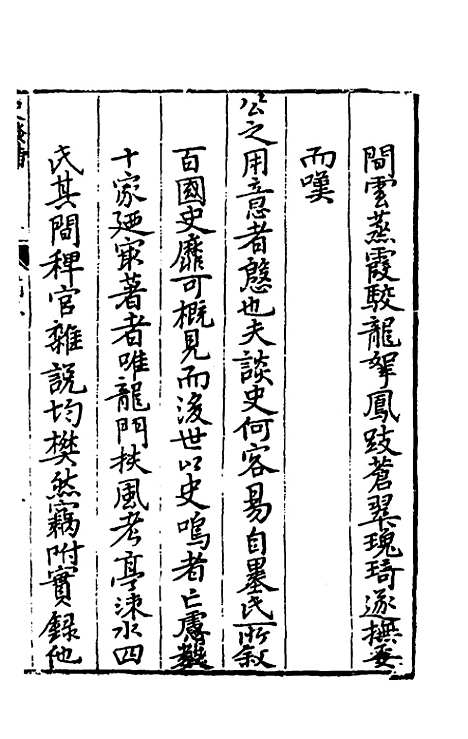 間雲蒸霞駮龍拏鳳跂蒼翠瑰琦遂撫要
而嘆
公之用意者慇也夫談史何容易自墨氏所叙
百國史靡可概見而後世以史鳴者亡慮數
十家廼㝡著者唯龍門扶風考亭涑水四
氏其間稗官雜說均樊然竊附實錄他